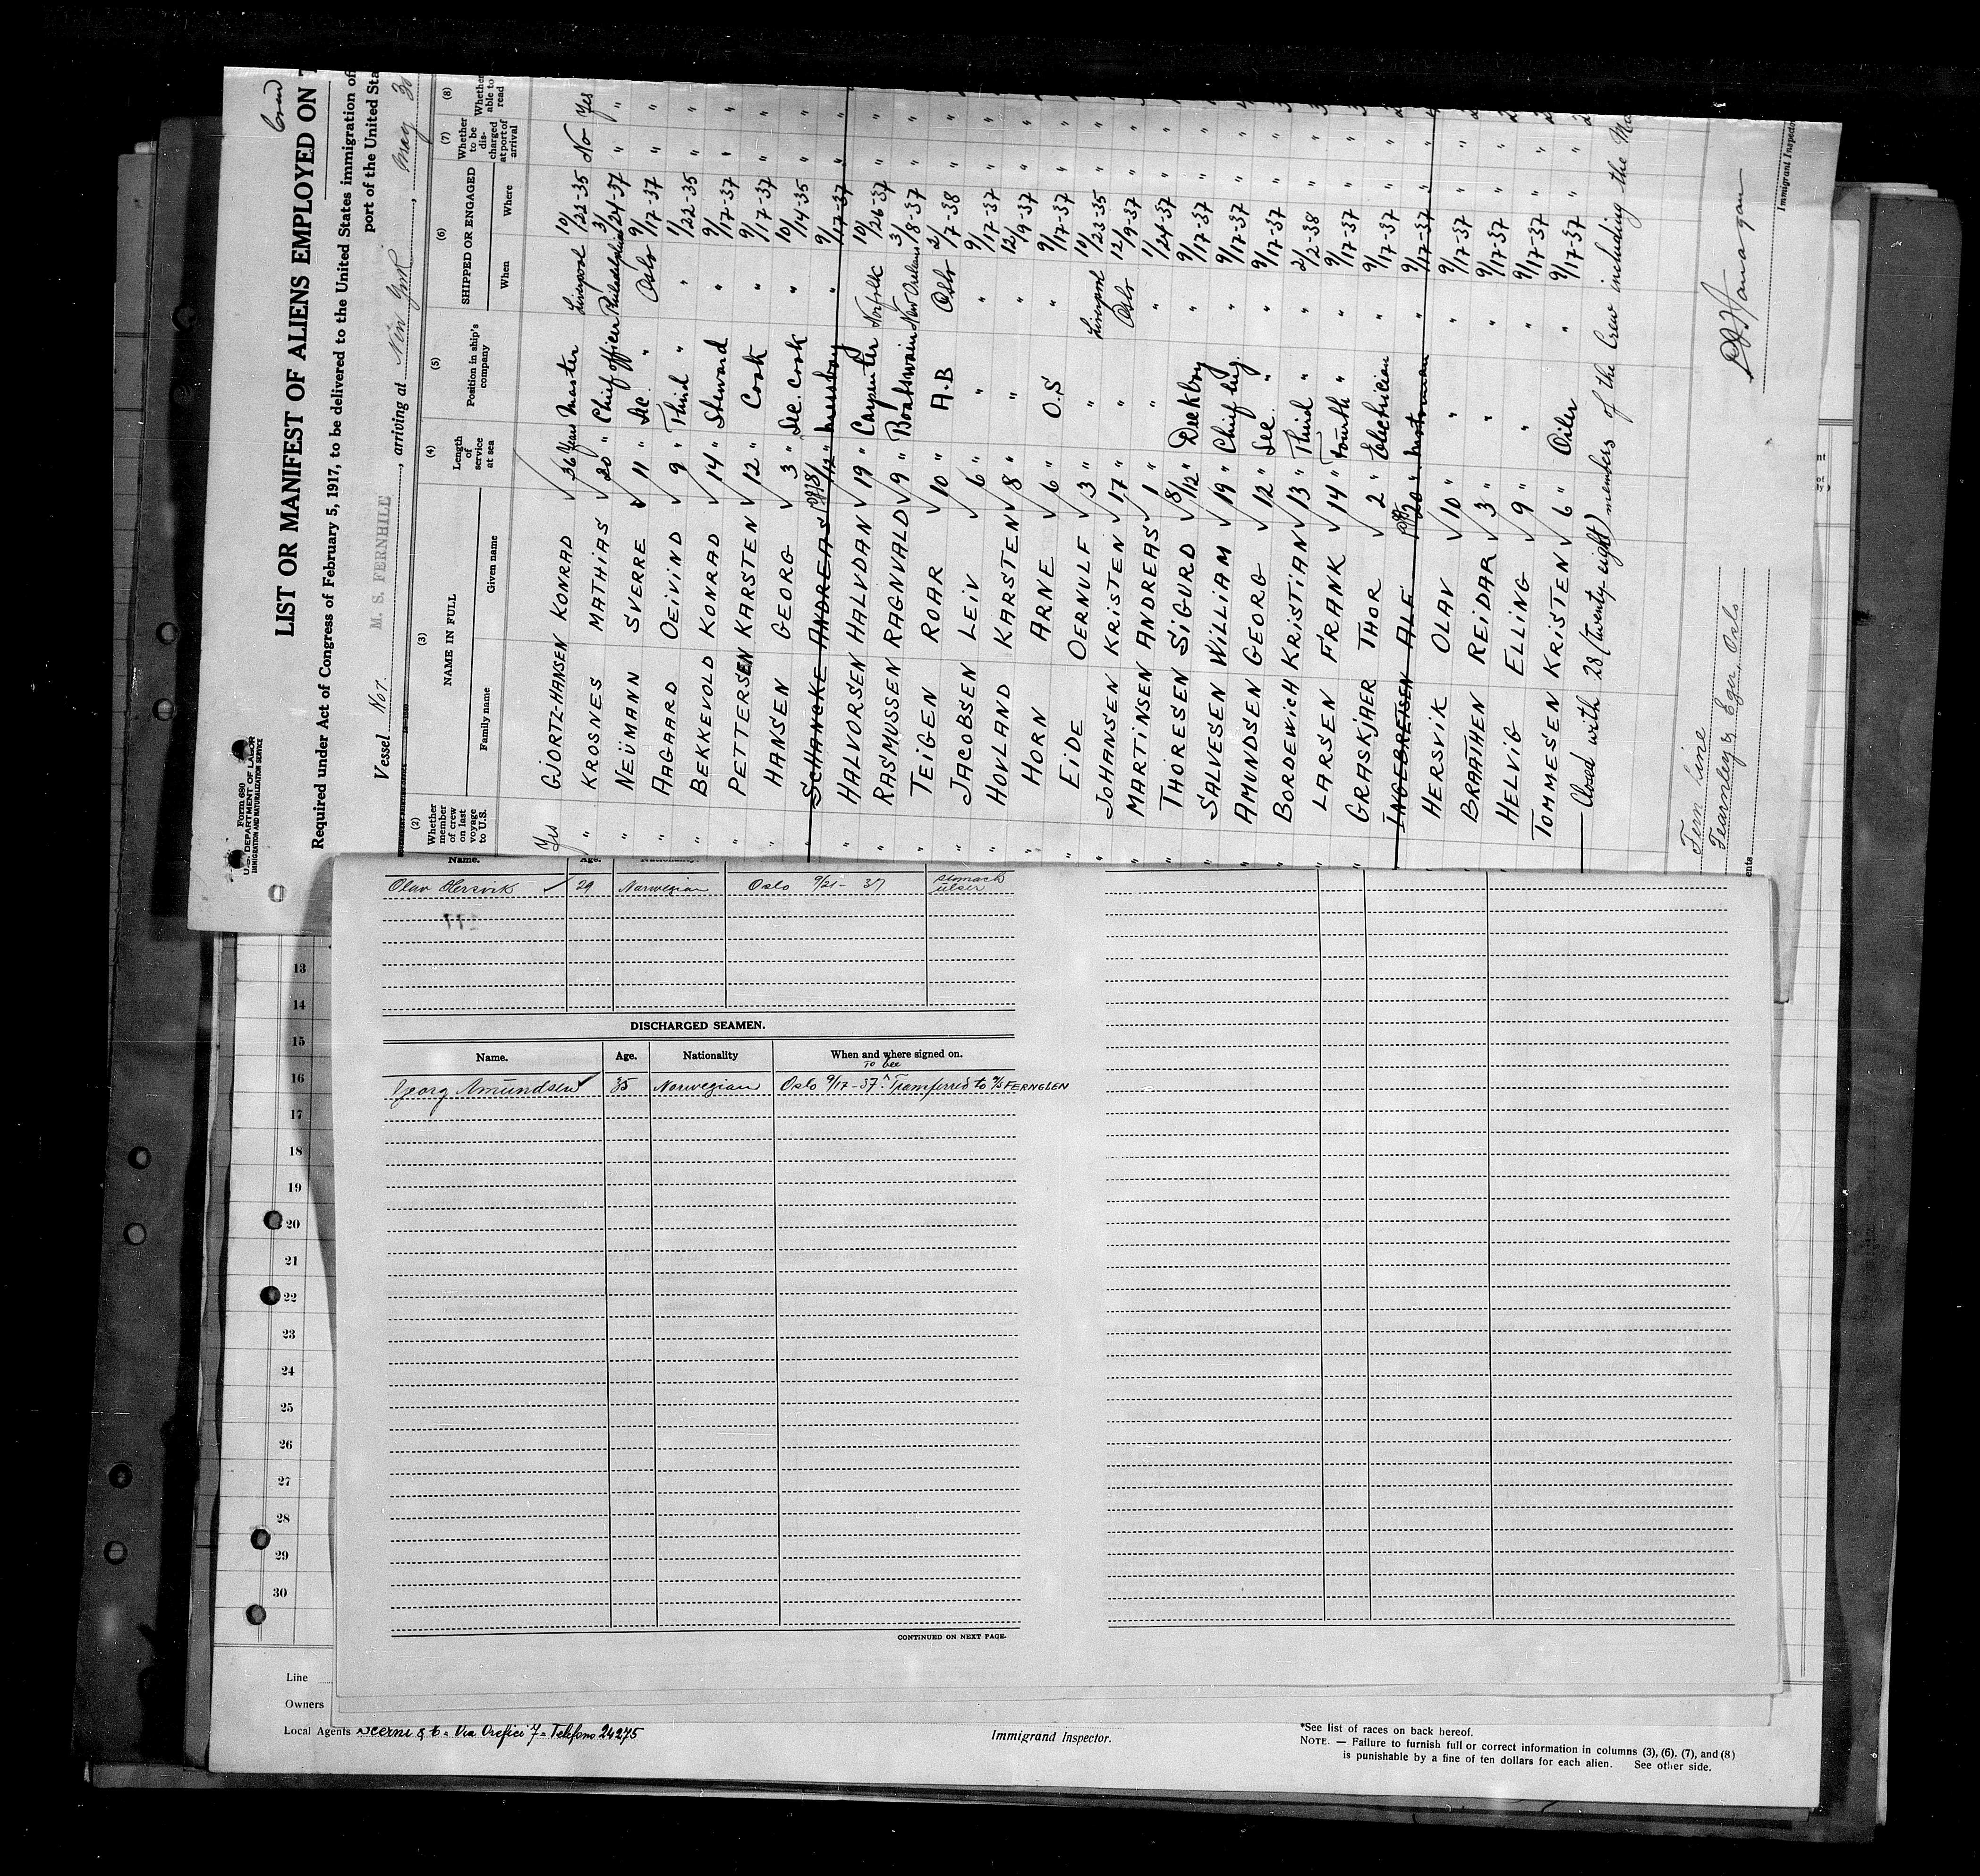 Crew
LIST OR MANIFEST OF ALIENS EMPLOYED ON
Required under Act of Congress of February 5, 1917, to be delivered to the United States immigration of
port of the United Sta
Form 680
U.S. DEPARTMENT OF LABOR
IMMIGRATION AND NATURALIZATION SERVICE
Vessel Nor. M. S. FERNHILL, arriving at New York, May 30
(2) (3) (4) (5) (6) (7) (8)
Whether member of crew on last voyage to U.S. NAME IN FULL Length of service at sea Position in ship's company SHIPPED OR ENGAGED Whether to be discharged at port of arrival Whether able to read
Family name Given name When Where
Yes GJORTZ-HANSEN KONRAD 36 Years Master Liverpool 10/22-35 No Yes
" KROSNES MATHIAS 20 " Chief officer Philadelphia 3/24-37 " "
" NEÜMANN SVERRE 11 " Sec. " Oslo 9/17-37 " "
" AAGAARD OEIVIND 9 " Third " " 1/22-35 " "
" BEKKEVOLD KONRAD 14 " Steward " 9/17-37 " "
" PETTERSEN KARSTEN 12 " Cook " 9/17-37 " "
" HANSEN GEORG 3 " Sec. Cook " 10/14-35 " "
" SCHANCKE ANDREAS 8/12 " messboy " 9/17-37 " "
" HALVORSEN HALVDAN 19 " Carpenter Norfolk 10/26-37 " "
" RASMUSSEN RAGNVALD 9 " Boatswain New Orleans 3/8-37 " "
" TEIGEN ROAR 10 " A.B Oslo 2/7-38 " "
" JACOBSEN LEIV 6 " " " 9/17-37 " "
" HOVLAND KARSTEN 8 " " " 12/9-37 " "
" HORN ARNE 6 " O.S " 9/17-37 " "
" EIDE OERNULF 3 " " Liverpool 10/23-35 " "
" JOHANSEN KRISTEN 17 " " Oslo 12/9-37 "
" MARTINSEN ANDREAS 1 " " " 11/24-37 "
" THORESEN SIGURD 8/12 " Deckboy " 9/17-37 "
" SALVESEN WILLIAM 19 " Chief Eng. " 9/17-37 "
" AMUNDSEN GEORG 12 " Sec. " " 9/17-37 "
" BORDEWICH KRISTIAN 13 " Third " " 2/2-38 "
" LARSEN FRANK 14 " Fourth " " 9/17-37 "
" GRASKJAER THOR 2 " Electrician " 9/17-37 "
INGEBRETSEN ALF 20 " motorman " 9/17-37 "
HERSVIK OLAV 10 " " " 9/17-37 "
BRAATHEN REIDAR 3 " " " 9/17-37 "
HELVIG ELLING 9 " " " 9/17-37 "
TOMMESEN KRISTEN 6 " Oiler " 9/17-37 "
Closed with 28 (twenty-eight) members of the Crew including the Ma
Fern Line
Fearnley & Eger, Oslo
Immigrant Inspector
Name. Age. Nationality.
Olav Hersvik 29 Norwegian Oslo 9/21-37 stomach ulser
DISCHARGED SEAMEN.
Name. Age. Nationality When and where signed on.
To bee
Georg Amundsen 35 Norwegian Oslo 9/17-37. Transferred to M/S FERNGLEN
CONTINUED ON NEXT PAGE.
13
14
15
16
17
18
19
20
21
22
23
24
25
26
27
28
29
30
Line
Owners
Local Agents Scerni & C. Via Orefici 7 = Telefono 24275
Immigrand Inspector.
*See list of races on back hereof.
NOTE. — Failure to furnish full or correct information in columns (3), (6), (7), and (8)
is punishable by a fine of ten dollars for each alien. See other side.